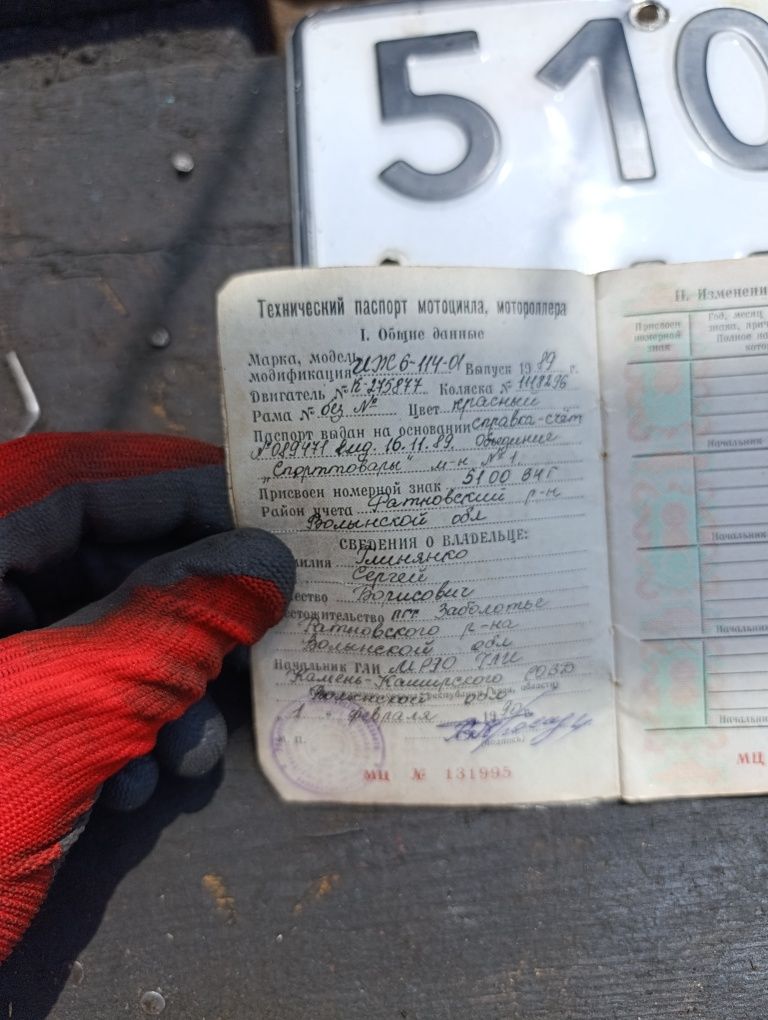 510
Технический паспорт мотоцикла, мотороллера
I. Общие данные
Марка, модель,
модификация ИЖ 6-114-01 Выпуск 1989 г.
Двигатель № К-275877 Коляска № 1118296
Рама № без № Цвет красный
Паспорт выдан на основании справка-счет
№ 089471 выд. 16.11.89
„Спорттовары" м-н № 1
Присвоен номерной знак 5100 ВЧГ
Район учета Ратновский р-н
Волынской обл
СВЕДЕНИЯ О ВЛАДЕЛЬЦЕ:
милия Глинянко
Сергей
ество Борисович
стожительство пгт. Заболотье
Ратновского р-на
Волынской обл
Начальник ГАИ МРЭО ГАИ
Камень-Каширского РОВД
Волынской обл
1 " февраля 1990
М. П. (подпись)
МЦ № 131995
II. Изменени
Присвоен
номерной
знак
Год, месяц
знака, прич
Полное на
кото
Начальник
Начальник
Начальник
Начальник
МЦ